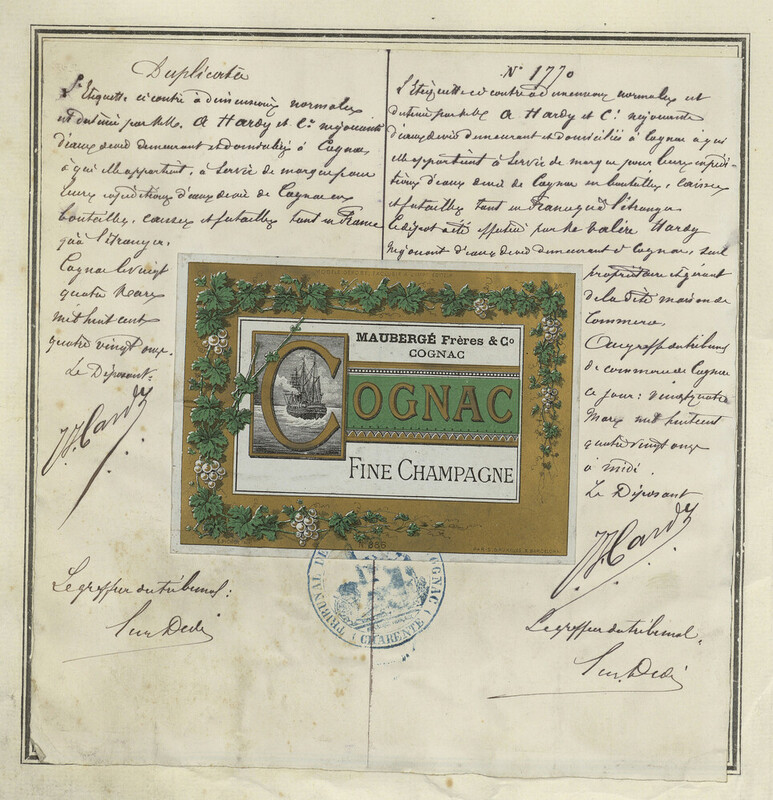 Duplicata
L'Etiquette ci contre à dimensions normales
est détenue par MM. A Hardy et Cie négociants
d'eaux de vie demeurant et domiciliés à Cognac
à qui elle appartient, à servir de marque pour
leurs expéditions d'eaux de vie de Cognac en
bouteilles, caisses et futailles tant en France
qu'à l'étranger.
Cognac le vingt
quatre Mars
mil huit cent
quatre vingt onze.
Le Déposant
Hardy
Le greffier du tribunal:
N° 1770
L'Etiquette ci contre à dimensions normales est
détenue par MM. A Hardy et Cie négociants
d'eaux de vie demeurant et domiciliés à Cognac à qui
elle appartient à servir de marque pour leurs expédi-
tions d'eaux de vie de Cognac en bouteilles, caisses
et futailles tant en France qu'à l'étranger
Le dépôt a été effectué par Mr Valère Hardy
négociant d'eaux de vie demeurant à Cognac, seul
propriétaire et gérant
de la dite maison de
Commerce.
Au greffe du tribunal
de commerce de Cognac
ce jour: vingt quatre
Mars mil huit cent
quatre vingt onze
à midi.
Le Déposant
Hardy
Le greffier du tribunal.
MAUBERGÉ Frères & Co
COGNAC
COGNAC
FINE CHAMPAGNE
886
TRIBUNAL DE COGNAC (CHARENTE)